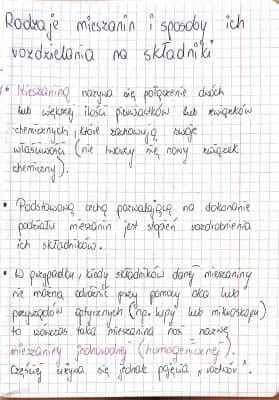 Rodzaje mieszanin i sposoby ich
rozdzielania na składniki
• Mieszaniną nazywa się połączenie dwóch
lub większej ilości pierwiastków lub związków
chemicznych, które zachowują swoje
właściwości (nie tworzy się nowy związek
chemiczny).
• Podstawową cechą pozwalającą na dokonanie
podziału mieszanin jest stopień rozdrobnienia
ich składników.
• W przypadku, kiedy składników danej mieszaniny
nie można odróżnić przy pomocy oka lub
przyrządów optycznych (np. lupy lub mikroskopu)
to wówczas taka mieszanina nosi nazwę
mieszaniny jednorodnej (homogenicznej).
Częściej używa się jednak pojęcia „roztwór".